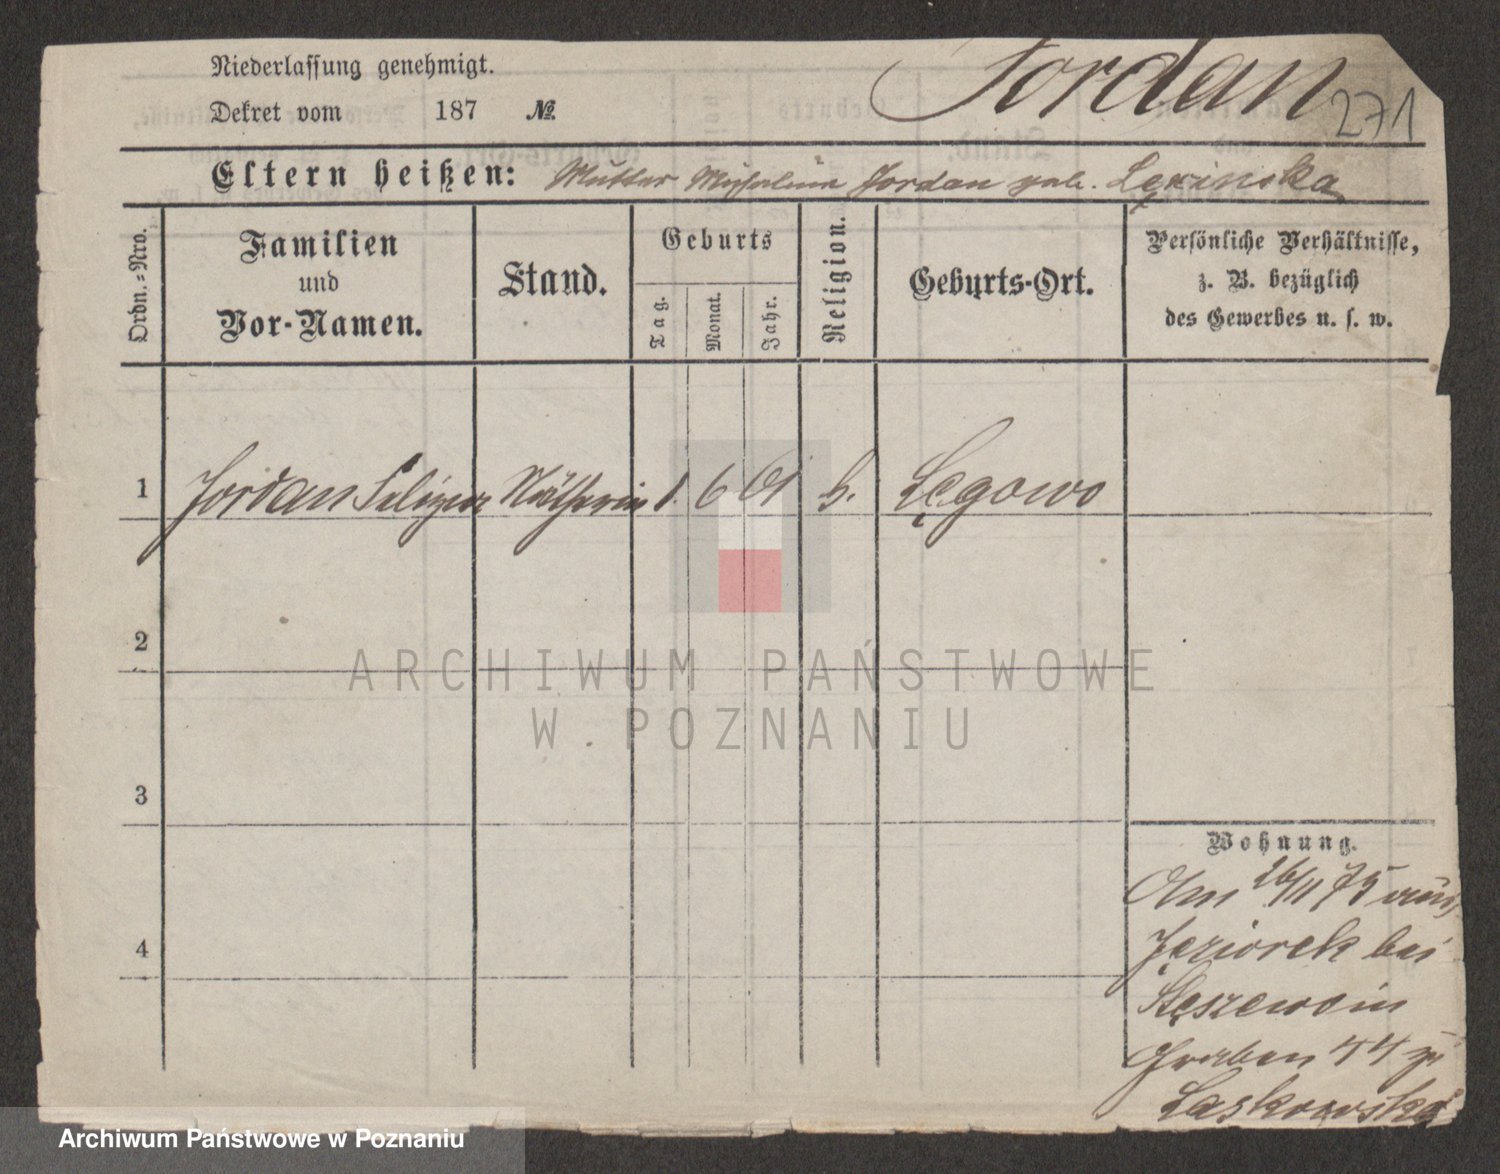 Niederlassung genehmigt.
Jordan
271
Dekret vom 187 №.
Eltern heißen: Mutter Jordan geb.
Ordn.=Nro.
Familien
und
Vor-Namen.
Stand.
Geburts
Tag.
Monat.
Jahr.
Religion.
Geburts-Ort.
Persönliche Verhältnisse,
z. B. bezüglich
des Gewerbes u. s. w.
1 Jordan Näherin 1. 6 61 k. Łęgowo
2
3
4
Wohnung.
Am 26/11 75 aus
Jeziorek bei
Stęszewo in
Graben 44 zu
Laskowska
ARCHIWUM PAŃSTWOWE
W POZNANIU
Archiwum Państwowe w Poznaniu